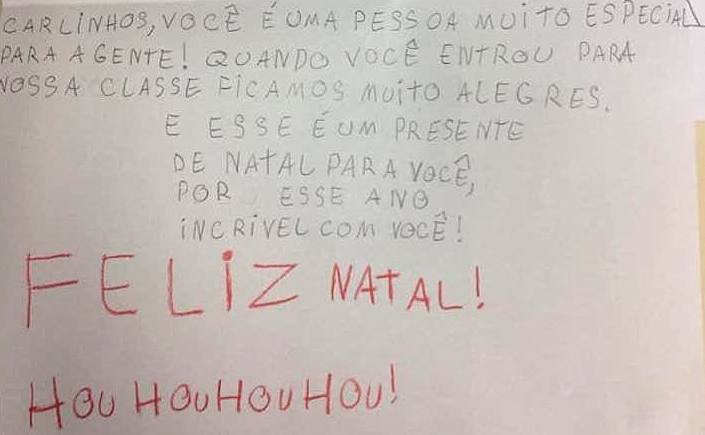 CARLINHOS, VOCÊ É UMA PESSOA MUITO ESPECIAL
PARA A GENTE! QUANDO VOCÊ ENTROU PARA
NOSSA CLASSE FICAMOS MUITO ALEGRES.
E ESSE É UM PRESENTE
DE NATAL PARA VOCÊ,
POR ESSE ANO
INCRÍVEL COM VOCÊ!
FELIZ NATAL!
HOU HOU HOU HOU!